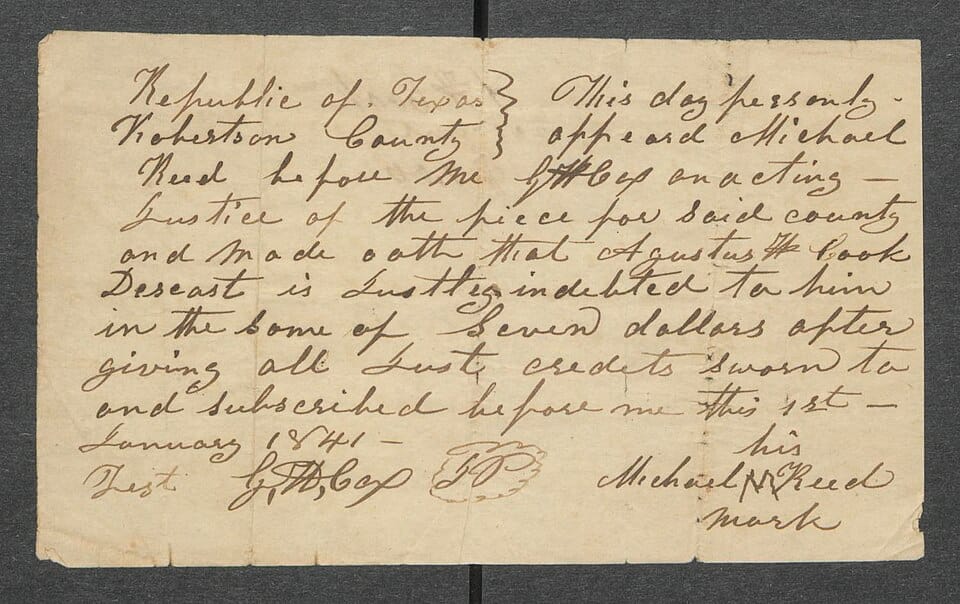 Republic of Texas } This day personly
Robertson County } appeard Michael
Reed before me G H Cox an acting —
Justice of the piece for said county
and made oath that Agustus H Cook
Deseast is Justley indebted to him
in the some of Seven dollars after
giving all Just credets sworn to
and subscribed before me this 1st —
January 1841 —
his
Test G, H, Cox JP Michael Reed
mark